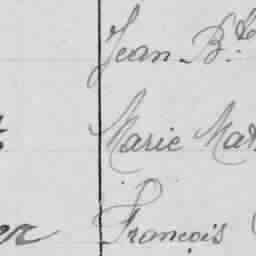 Jean B.te
Marie Mat
er François